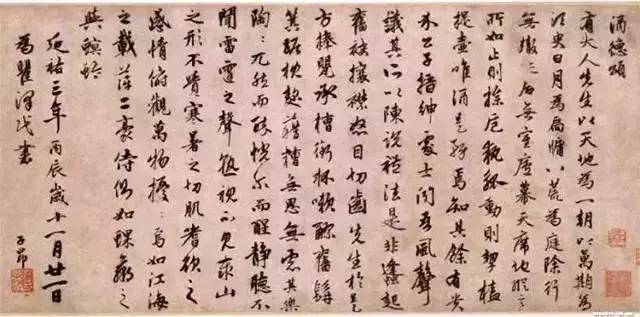 酒德頌
有大人先生以天地為一朝以萬期為
須臾日月為扃牖八荒為庭除行
無轍跡居無室廬幕天席地縱意
所如止則操卮執觚動則挈榼
提壺唯酒是務焉知其餘有貴
介公子搢紳處士聞吾風聲
議其所以陳說禮法是非鋒起
奮袂攘襟怒目切齒先生於是
方捧甖承槽銜杯嗽醪奮髯
箕踞枕麴藉糟無思無慮其樂
陶〻兀然而醉恍爾而醒靜聽不
聞雷霆之聲孰視不見泰山
之形不覺寒暑之切肌嗜欲之
感情俯觀萬物擾〻焉如江海
之載萍二豪侍側如蜾蠃之
與螟蛉
延祐三年丙辰歲十一月廿一日
為瞿澤民書
子昂